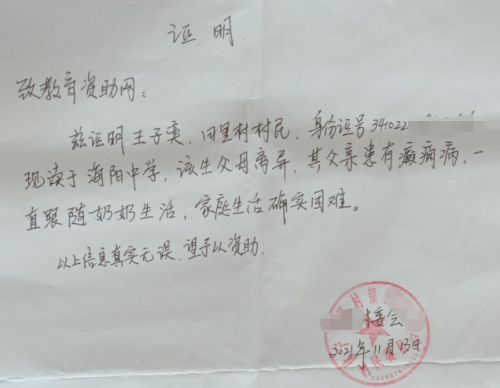 证明
致教育资助网：
兹证明王子奕，田里村村民，身份证号341022
现读于海阳中学，该生父母离异，其父亲患有癫痫病，一
直跟随奶奶生活，家庭生活确实困难。
以上信息真实无误，望予以资助.
村委会
2021年11月13日